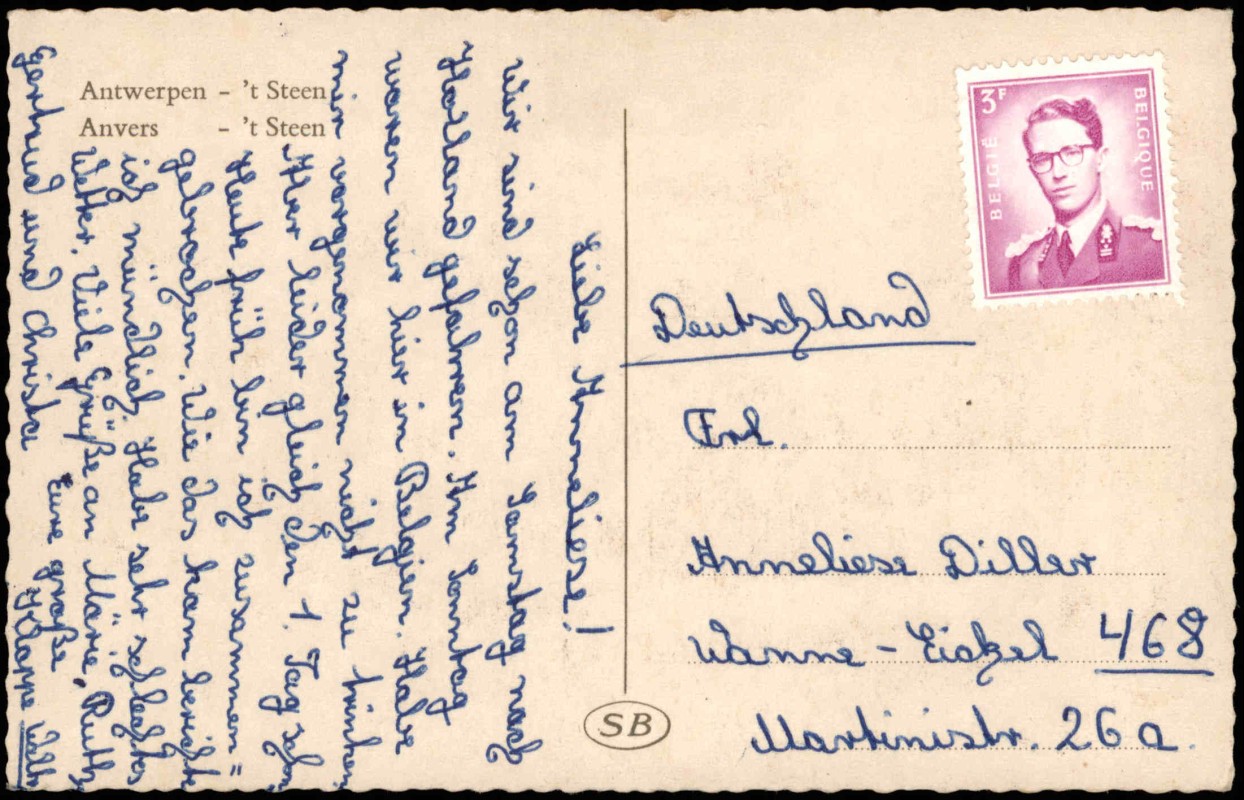 Antwerpen - 't Steen
Anvers - 't Steen
Liebe Anneliese!
Wir sind schon am Samstag nach
Holland gefahren. Am Sontag
waren wir hier in Belgien. Habe
mir vorgenommen nicht zu trinken.
Aber leider gleich den 1. Tag
Heute früh bin ich zusammen=
gebrochen. Wie das kam berichte
ich mündlich. Habe sehr schlechtes
Wetter. Viele Grüße an Marie, Ruth,
Gertrud und Christa
Eure große
Klappe
BELGIË
3F
BELGIQUE
Deutschland
Frl.
Anneliese Diller
Wanne-Eickel 468
Martinistr. 26a.
SB